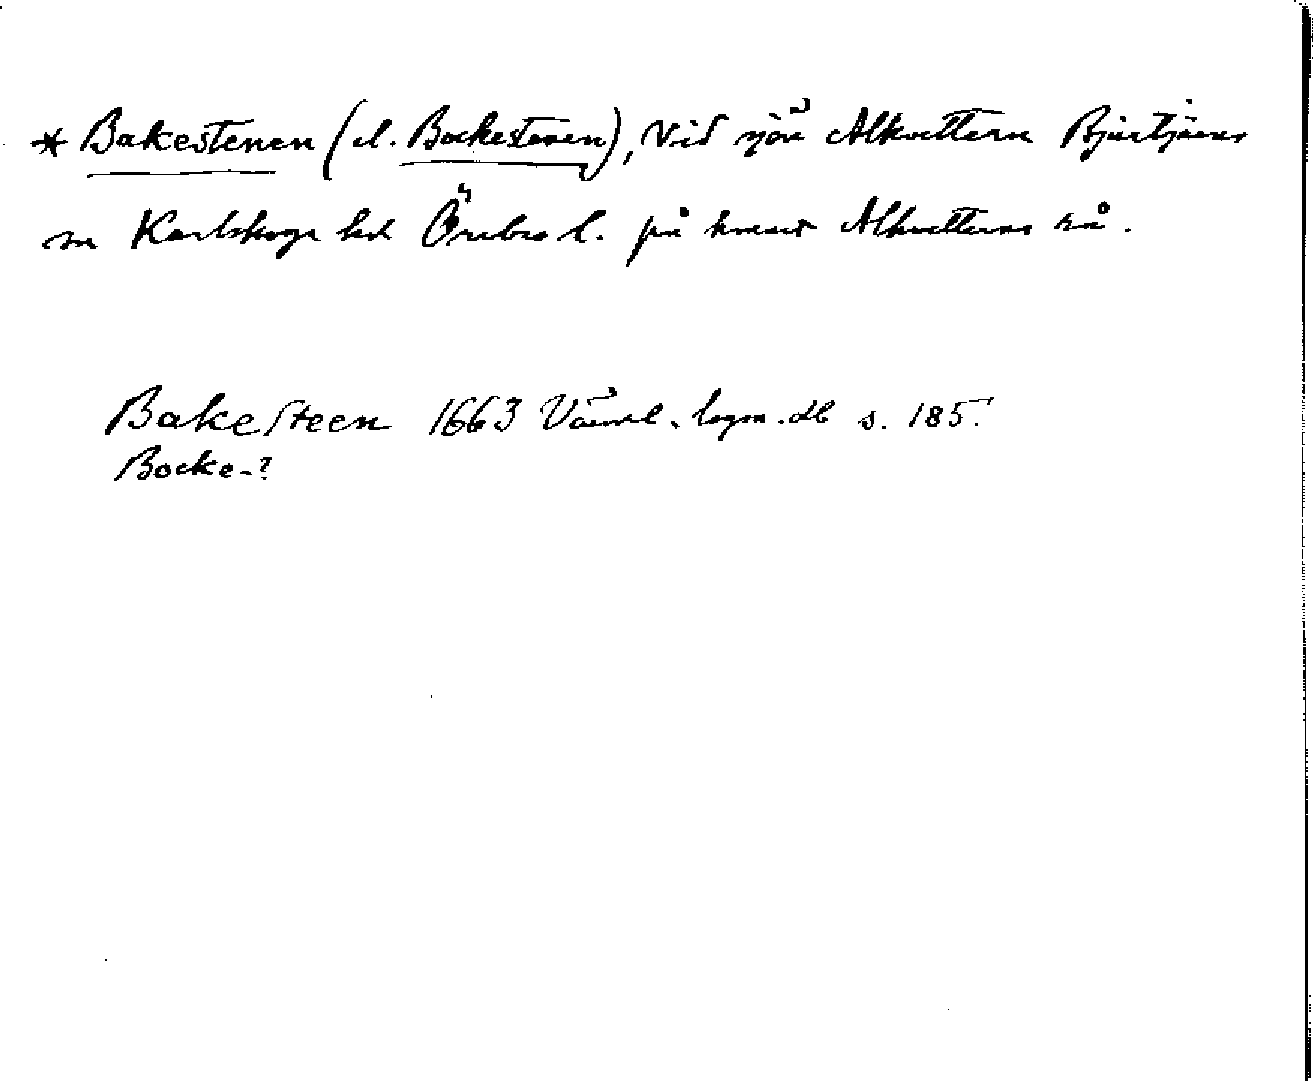 * Bakestenen (el. Bockestenen), vid sjön Alkvettern Bjurtjärns
sn Karlskoga hd Örebro l. på hemmet Alkvetterns rå.
Bakesteen 1663 Värml. lagm. db s. 185.
Bocke-?